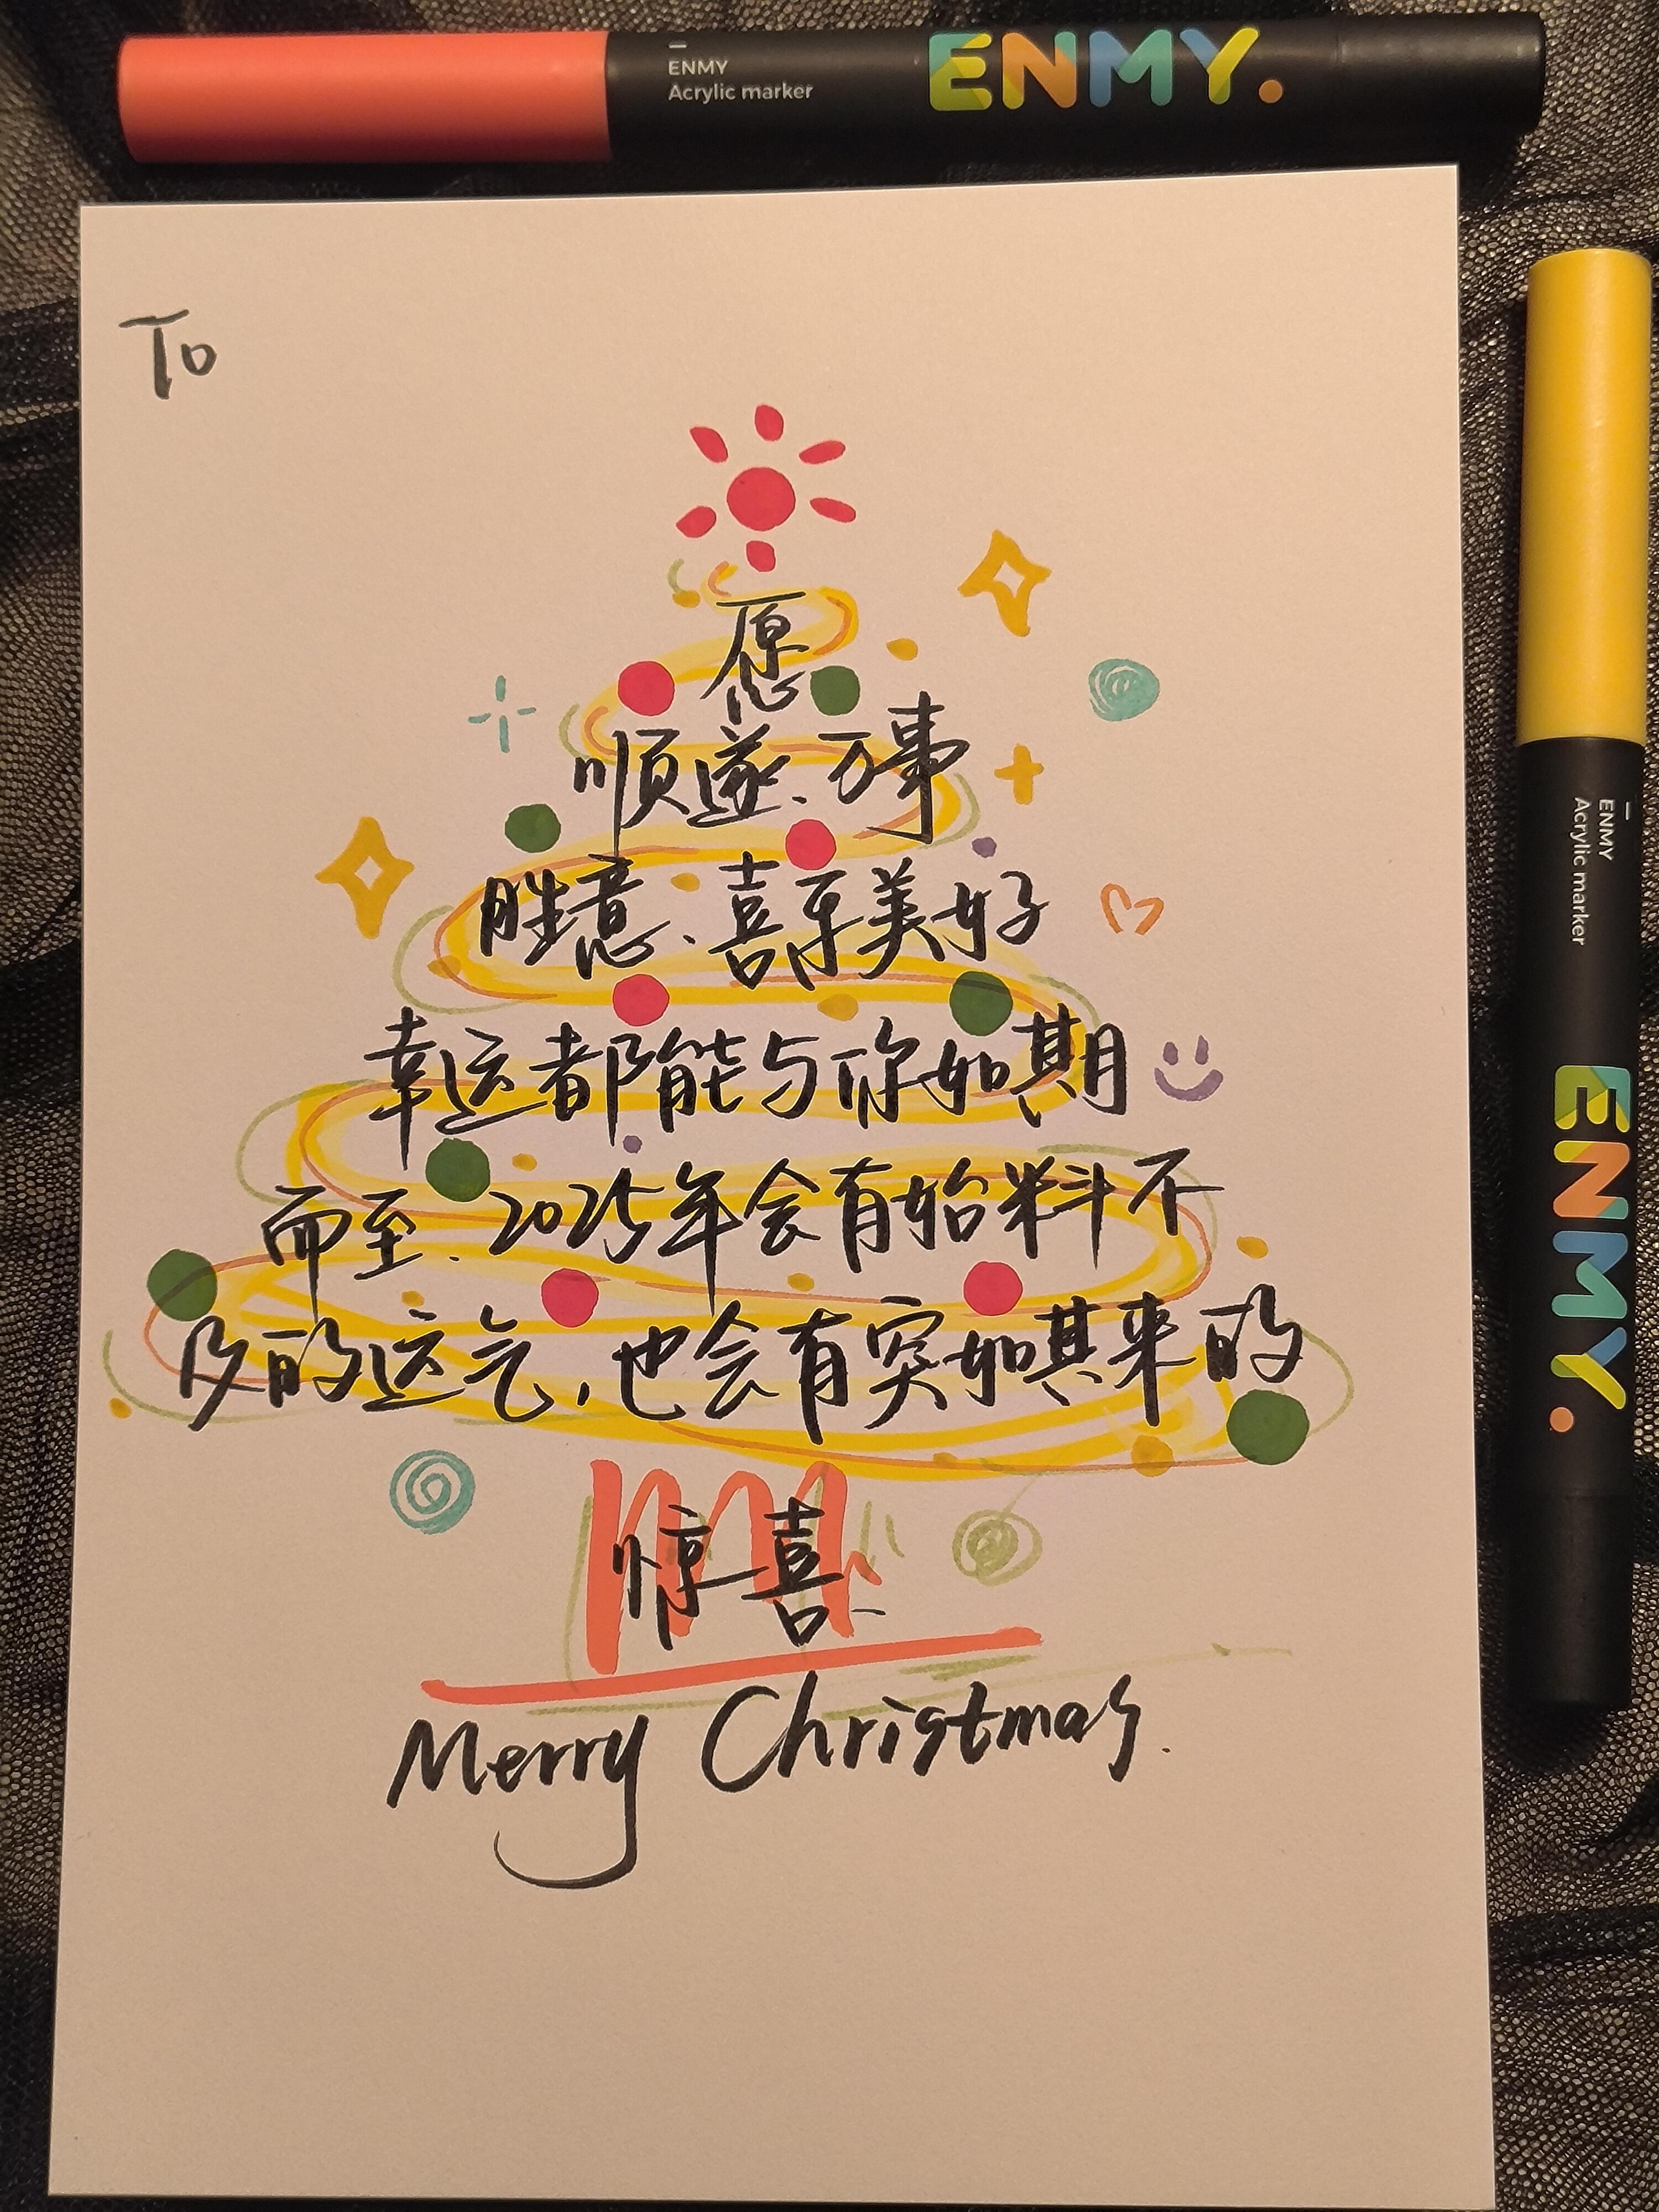 ENMY
Acrylic marker
ENMY.
To
愿
顺遂、万事
胜意、喜乐美好
幸运都能与你如期
而至. 2025年会有始料不
及的运气,也会有突如其来的
惊喜.
Merry Christmas.
ENMY
Acrylic marker
ENMY.